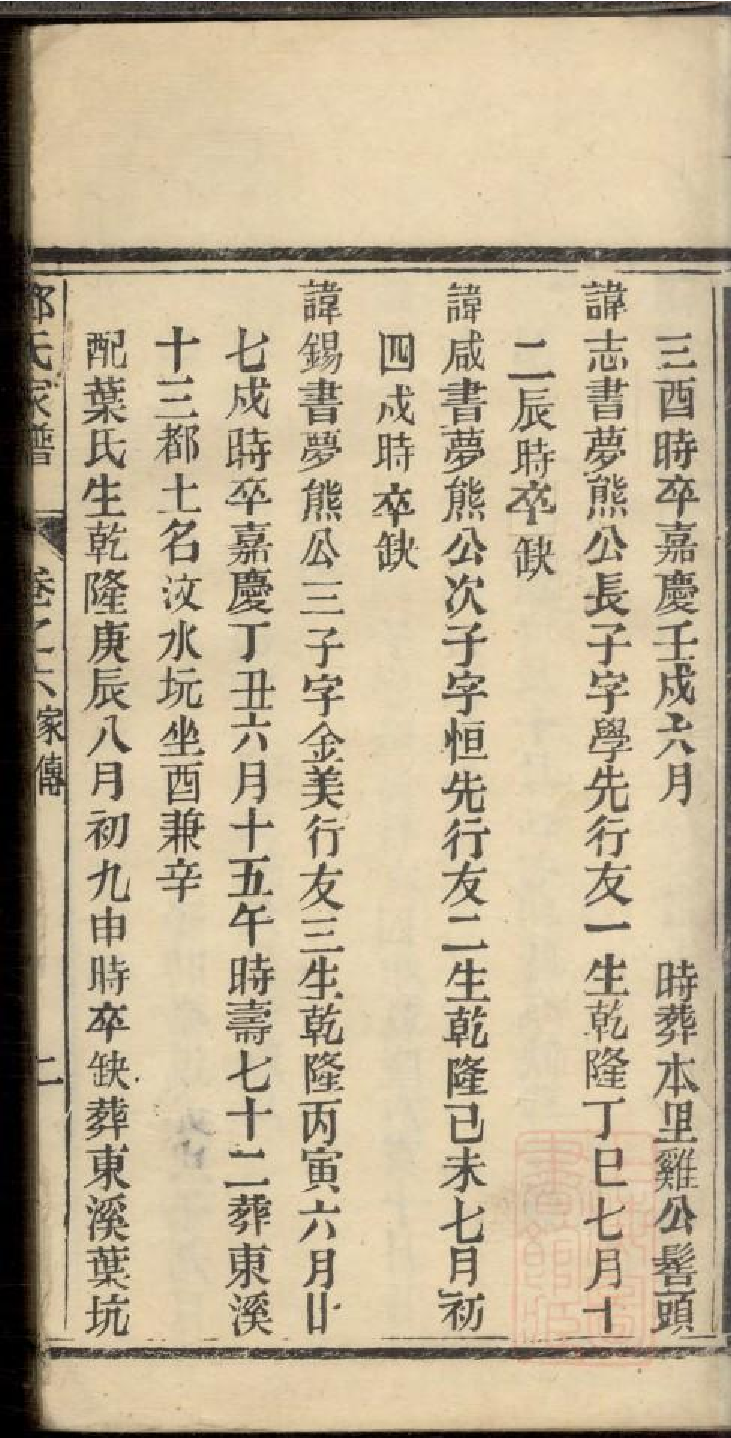 三酉時卒嘉慶壬戌六月 時葬本里雞公髻頭
諱志書夢熊公長子字學先行友一生乾隆丁巳七月十
二辰時卒缺
諱咸書夢熊公次子字恒先行友二生乾隆己未七月初
四戌時卒缺
諱錫書夢熊公三子字金美行友三生乾隆丙寅六月廿
七戌時卒嘉慶丁丑六月十五午時壽七十二葬東溪
十三都土名汶水坑坐酉兼辛
配葉氏生乾隆庚辰八月初九申時卒缺葬東溪葉坑
氏家譜 卷之六 家傳 二